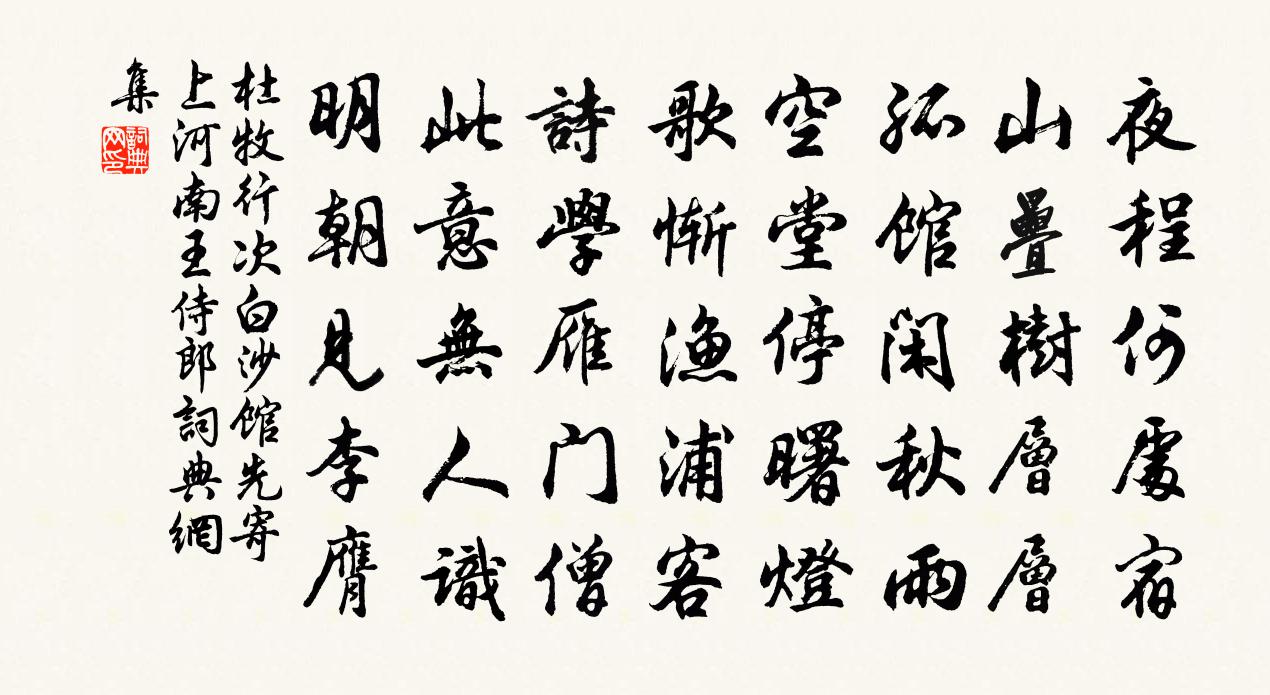 夜程何處宿
山疊樹層層
孤館閑秋雨
空堂停曙燈
歌慚漁浦客
詩學雁门僧
此意無人識
明朝見李膺
杜牧行次白沙館先寄
上河南王侍郎詞典網
集
詞典
网印